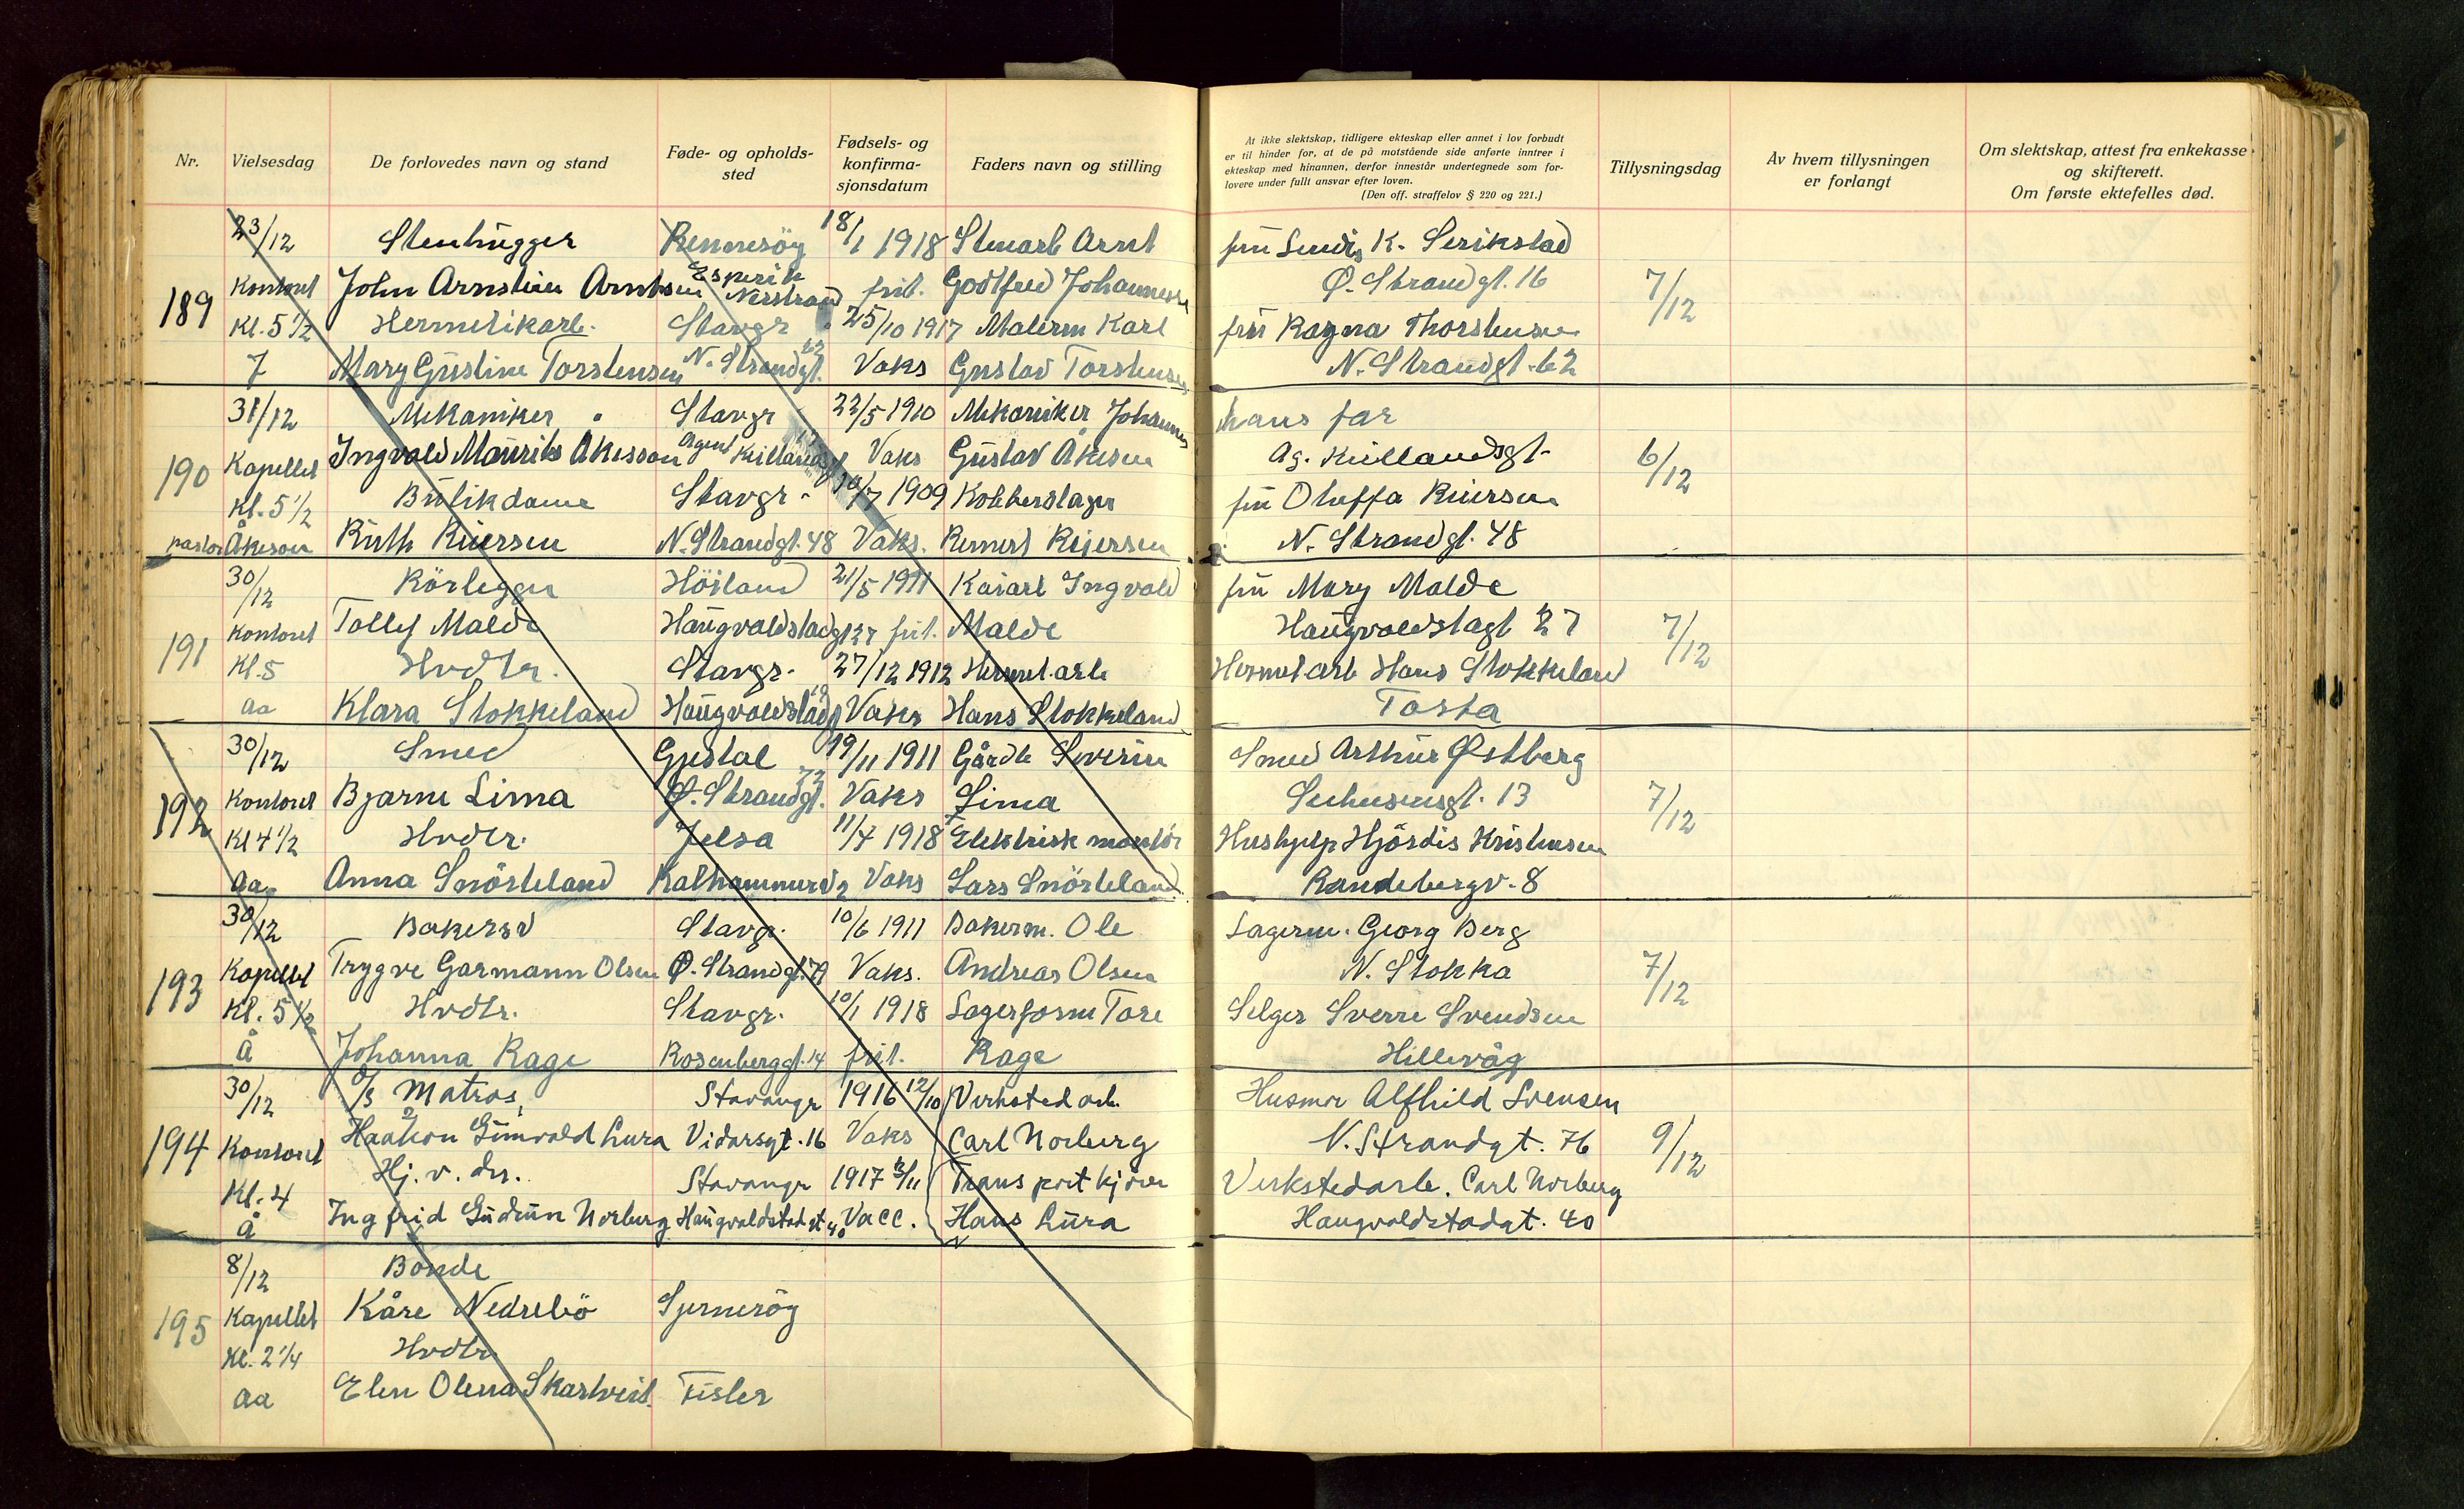 Nr.
Vielsesdag
De forlovedes navn og stand
Føde- og opholds-
sted
Fødsels- og
konfirma-
sjonsdatum
Faders navn og stilling
At ikke slektskap, tidligere ekteskap eller annet i lov forbudt
er til hinder for, at de på motstående side anførte inntrer i
ekteskap med hinannen, derfor innestår undertegnede som for-
lovere under fullt ansvar efter loven.
[Den off. straffelov § 220 og 221.]
Tillysningsdag
Av hvem tillysningen
er forlangt
Om slektskap, attest fra enkekasse
og skifterett.
Om første ektefelles død.
189
23/12 Stenhugger Rennesöy 18/1 1918 Stenarb Arnt fru K. Serikstad
Kontoret John Arnstein Arntsen Nerstrand frit. Godtfred Johannessen Ø. Strandgt. 16 7/12
Kl. 5 1/2 Hermetikarb. Stavgr 25/10 1917 Malerm Karl fru Ragna Thorstensen
7 Mary Gustine Torstensen N. Strandgt. 62 Vaks Gustav Torstensen N. Strandgt. 62
190
31/12 Mekaniker Stavgr 22/5 1910 Mekaniker Johannes hans far
Kapellet Ingvald Maurits Åkesson Agent Kiellandsgt Vaks Gustav Åkesen Ag. Kiellandsgt. 6/12
Kl. 5 1/2 Butikdame Stavgr. 30/7 1909 Kobberslager fru Oluffa Reiersen
pastor Åkeson Ruth Reiersen N. Strandgt. 48 Vaks. Reinert Reiersen N. Strandgt. 48
191
30/12 Rörlegger Höiland 21/5 1911 Kaiarb Ingvald fru Mary Malde
Kontoret Tollef Malde Haugvaldstadgt 27 frit. Malde Haugvaldstagt 27 7/12
Kl. 5 Hvdtr. Stavgr. 27/12 1912 Hermet.arb Hermetarb Hans Stokkeland
aa Klara Stokkeland Haugvaldstadgt Vaks Hans Stokkeland Tasta
192
30/12 Smed Gjestal 19/11 1911 Gårdb Severin Smed Arthur Østberg
Kontoret Bjarne Lima Ø. Strandgt. 72 Vaks Lima Seehusensgt. 13 7/12
Kl 4 1/2 Hvdtr. Jelsa 11/7 1918 Elektrisk montör Hushjelp Hjördis Kristensen
aa Anna Snörteland Kalhammervd 2 Vaks Lars Snörteland Randebergv. 8
193
30/12 Bakersv Stavgr. 10/6 1911 Bakerm. Ole Lagerm. Georg Berg
Kapellet Trygve Garmann Olsen Ø. Strandgt. 79 Vaks. Andreas Olsen N. Stokka 7/12
Kl. 5 1/2 Hvdtr. Stavgr. 10/1 1918 Lagerform Tore Selger Sverre Svendsen
Å Johanna Rage Rosenberggt. 14 frit. Rage Hillevåg
194
30/12 Matros Stavanger 1916 12/10 Verksted arb. Husmor Alfhild Svensen
Kontoret Haakon Gunvald Lura Vidarsgt. 16 Vaks Carl Norberg N. Strandgt. 76 9/12
Kl. 4 Hj. v. der. Stavanger 1917 Transport kjörer Verkstedarb. Carl Norberg
Å Ingfrid Gudrun Norberg Haugvaldstadgt 40 Vacc. Hans Lura Haugvaldstadgt. 40
195
8/12 Bonde
Kapellet Kåre Nedrebö Sjerneröy
Kl. 2 1/4 Hvdtr
aa Elen Olena Skartveit. Fister